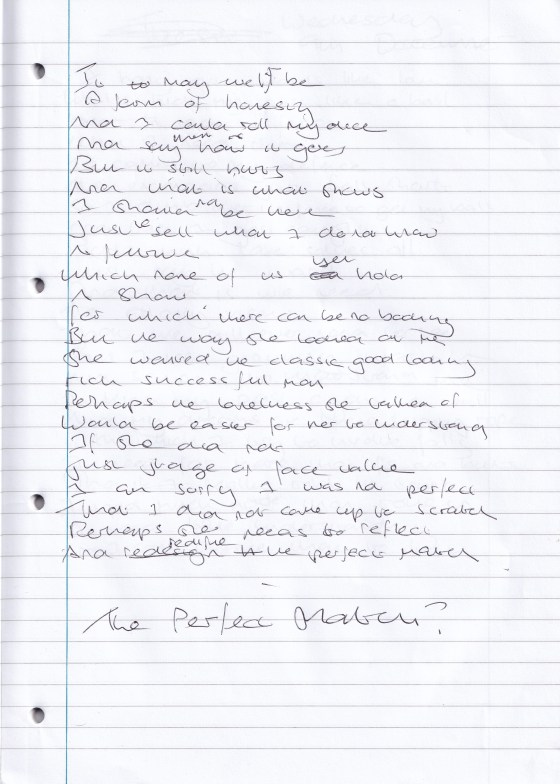 It may well be
A form of honesty
And I could roll my dice
And say then is how it goes
But it still hurts
And that is what shows
I should not be here
Just to sell what I do not know
A future
Which none of us yet hold
A show
For which there can be no booking
But the way she looked at me
She wanted the classic good looking
rich successful man
Perhaps the loneliness she talked of
Would be easier for her to understand
If she did not
Just judge at face value
I am sorry I was not perfect
That I did not come up to scratch
Perhaps she needs to reflect
And redefine the perfect match
The Perfect Match?